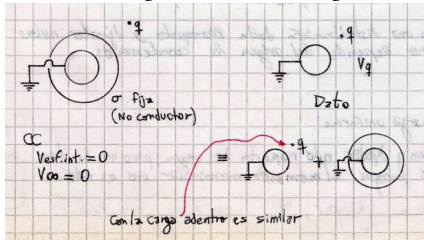 • q
• q
Vq
σ fija
(No conductor)
Dato
CC
Vesf.int. = 0
V∞ = 0
≡
• q
+
Con la carga adentro es similar